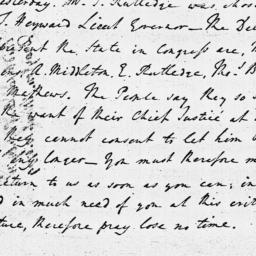 esterday. Mr. J. Rutledge was chos
T. Heyward Lieut Governor — The De
the State in Congress are,
A. Middleton, E. Rutledge, Thos. B
Mathews. The People say they so
the want of their Chief Justice at
they cannot consent to let him
any longer — You must therefore m
return to us as soon as you can; in
d in much need of you at this crit
ture, therefore pray lose no time.